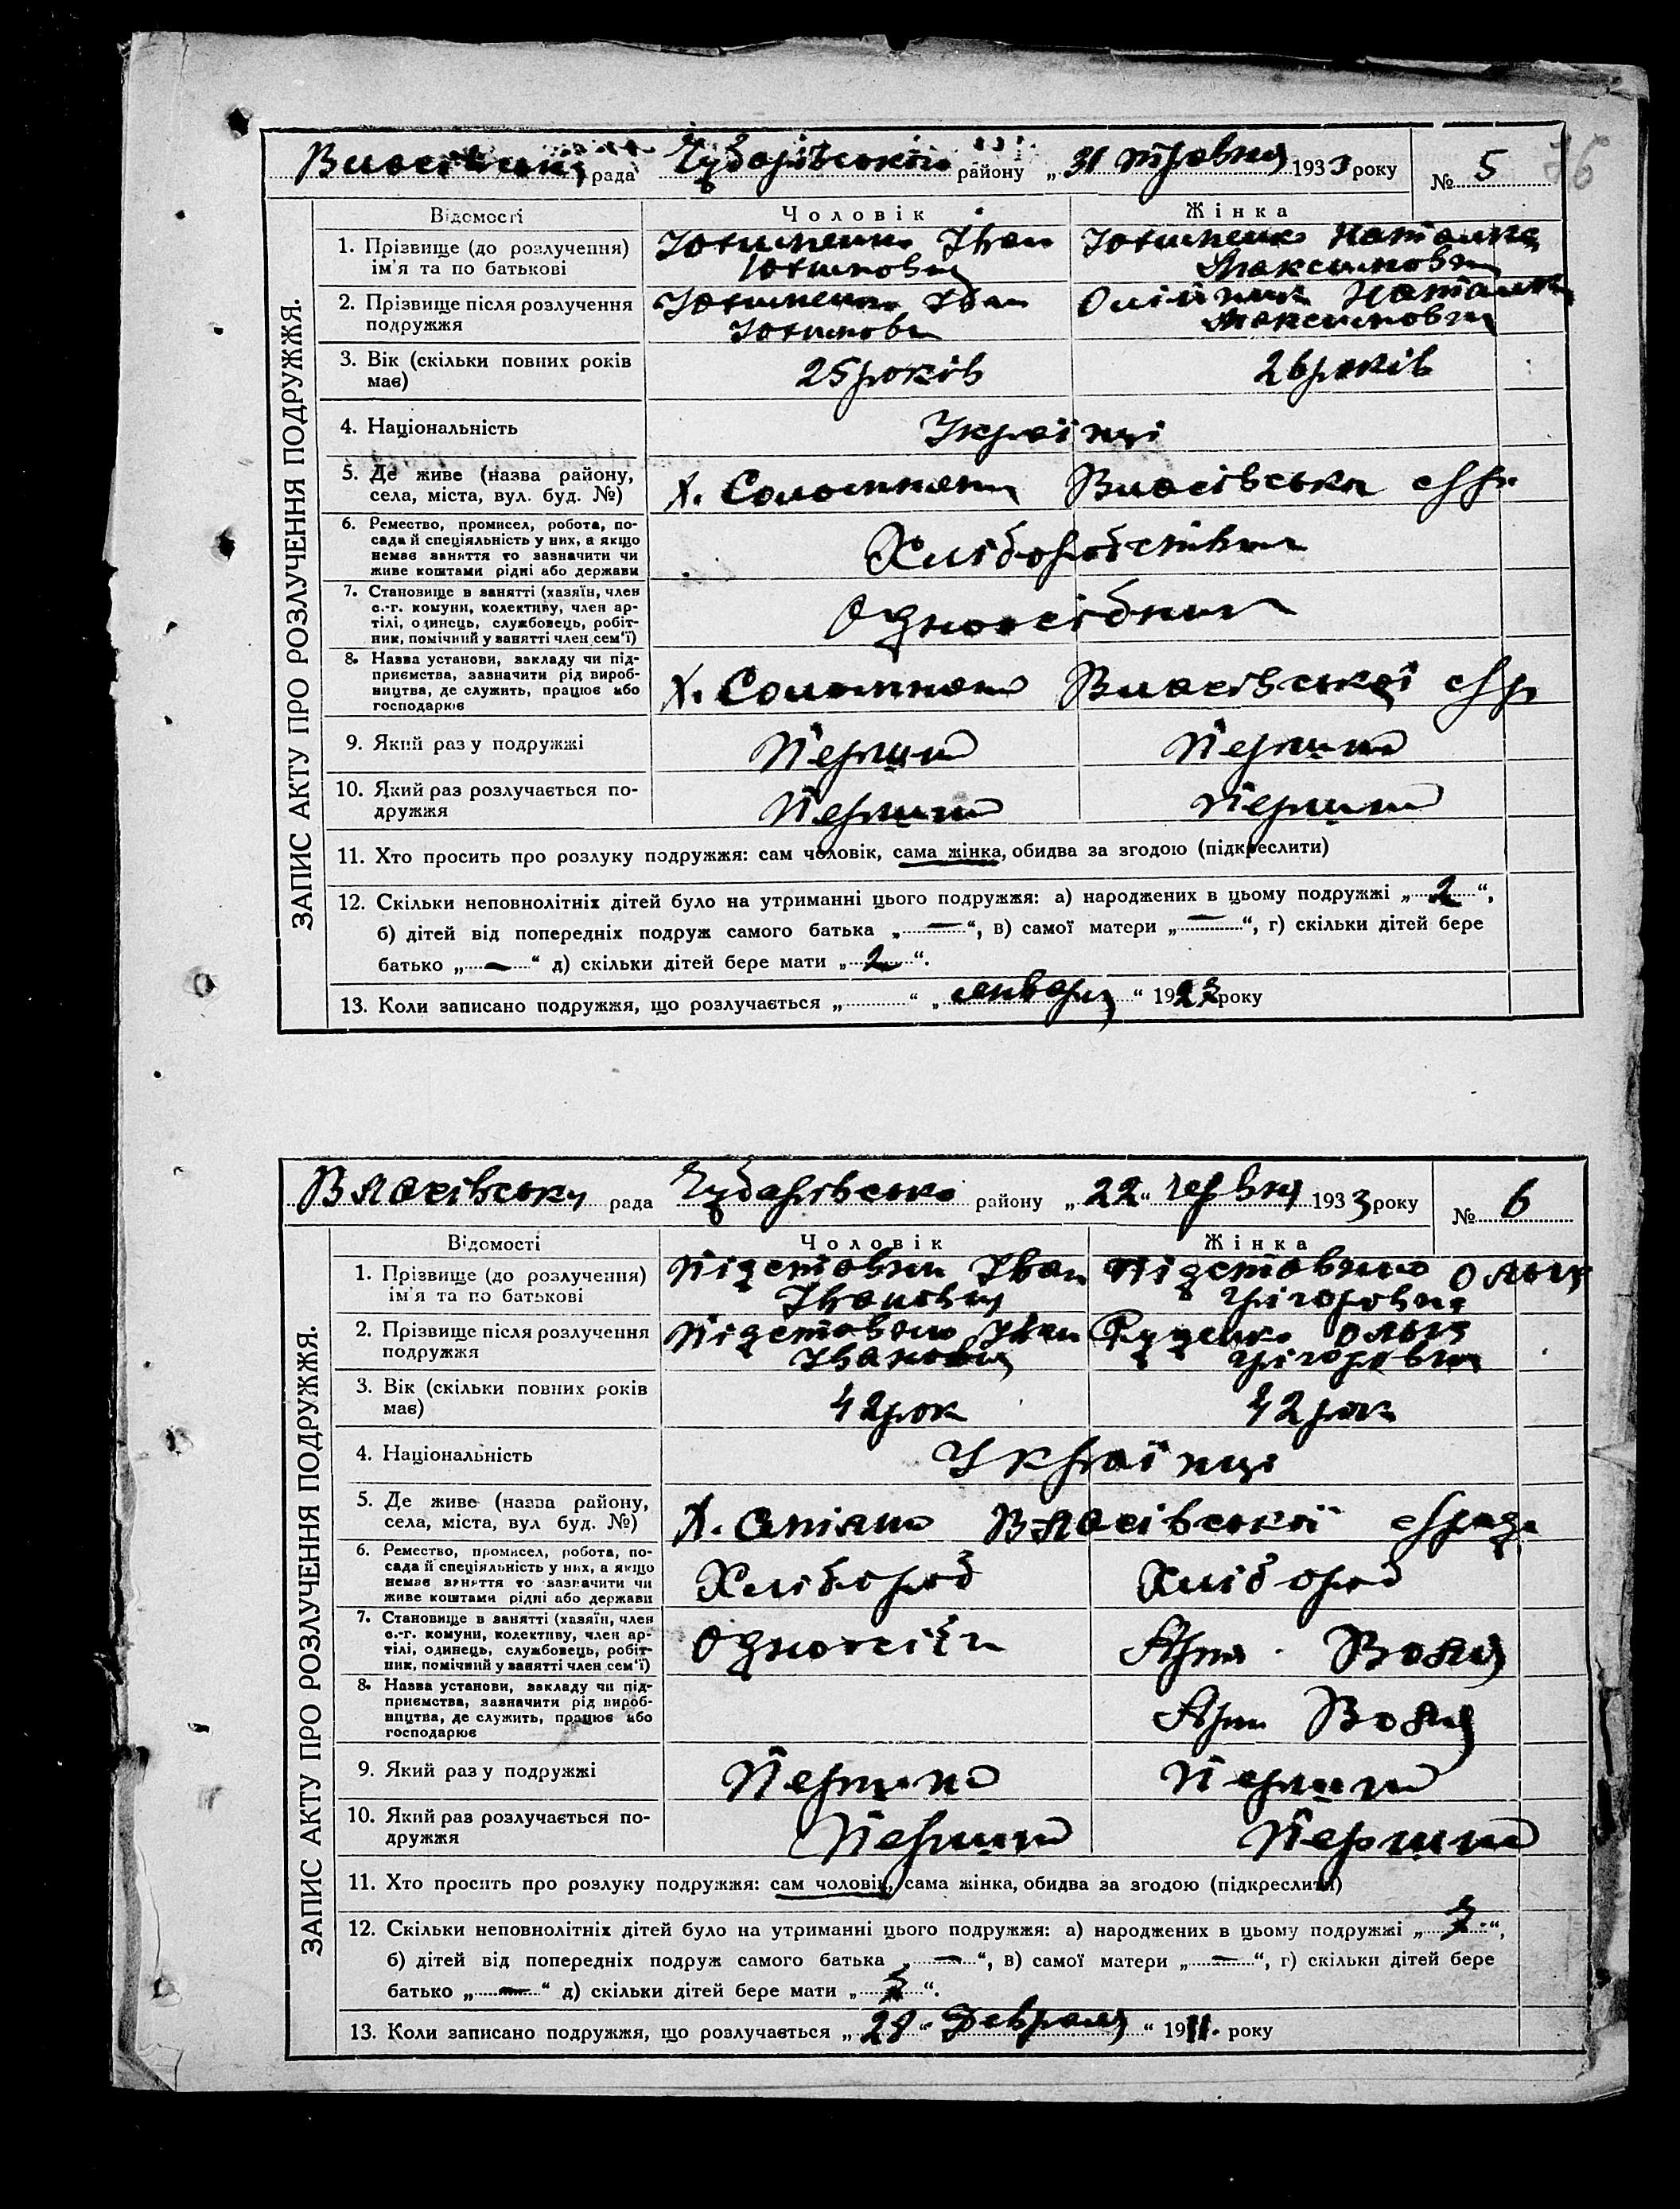 Власівська рада Чубарівського району „ 31 травня 1933 року № 5
76
ЗАПИС АКТУ ПРО РОЗЛУЧЕННЯ ПОДРУЖЖЯ.
Відомості Чоловік Жінка
1. Прізвище (до розлучення) Юхименко Іван Юхименко Наталка
ім'я та по батькові Юхимович Максимовна
2. Прізвище після розлучення Юхименко Іван Олійник Наталка
подружжя Юхимови Максимовна
3. Вік (скільки повних років 25 років 26 років
має)
4. Національність Українці
5. Де живе (назва району, Х. Власівська
села, міста, вул. буд. №)
6. Ремество, промисел, робота, по- Хліборобство
сада й спеціяльність у них, а якщо
немає заняття то зазначити чи
живе коштами рідні або держави
7. Становище в занятті (хазяїн, член Одноосібники
с.-г. комуни, колективу, член ар-
тілі, одинець, службовець, робіт-
ник, помічний у занятті член сем'ї)
8. Назва установи, закладу чи під- Х. Власівської
приємства, зазначити рід вироб-
ництва, де служить, працює або
господарює
9. Який раз у подружжі Перший Перший
10. Який раз розлучається по- Перший Перший
дружжя
11. Хто просить про розлуку подружжя: сам чоловік, сама жінка, обидва за згодою (підкреслити)
12. Скільки неповнолітніх дітей було на утриманні цього подружжя: а) народжених в цьому подружжі „ 2 “,
б) дітей від попередніх подруж самого батька „ — “, в) самої матери „ — “, г) скільки дітей бере
батько „ — “ д) скільки дітей бере мати „ 2 “.
13. Коли записано подружжя, що розлучається „ “ „ января “ 1923 року
Власівська рада Чубарівсько району „ 22 “ червня 1933 року № 6
ЗАПИС АКТУ ПРО РОЗЛУЧЕННЯ ПОДРУЖЖЯ.
Відомості Чоловік Жінка
1. Прізвище (до розлучення) Підставки Іван Підставкина Ольга
ім'я та по батькові Іванович Григоровна
2. Прізвище після розлучення Іван Ольга
подружжя Іванович Григоровна
3. Вік (скільки повних років 42 рок 42 рок
має)
4. Національність Українці
5. Де живе (назва району, Х. Власівської
села, міста, вул буд. №)
6. Ремество, промисел, робота, по- Хлібороб Хлібороб
сада й спеціяльність у них, а якщо
немає заняття то зазначити чи
живе коштами рідні або держави
7. Становище в занятті (хазяїн, член Одноосіб Арт. Воля
с.-г. комуни, колективу, член ар-
тілі, одинець, службовець, робіт-
ник, помічний у занятті член сем'ї)
8. Назва установи, закладу чи під- Арт Воля
приємства, зазначити рід вироб-
ництва, де служить, працює або
господарює
9. Який раз у подружжі Перший Перший
10. Який раз розлучається по- Перший Перший
дружжя
11. Хто просить про розлуку подружжя: сам чоловік, сама жінка, обидва за згодою (підкреслити)
12. Скільки неповнолітніх дітей було на утриманні цього подружжя: а) народжених в цьому подружжі „ 3 “,
б) дітей від попередніх подруж самого батька „ — “, в) самої матери „ — “, г) скільки дітей бере
батько „ — “ д) скільки дітей бере мати „ 3 “.
13. Коли записано подружжя, що розлучається „ 28 “ Февраля “ 1911. року